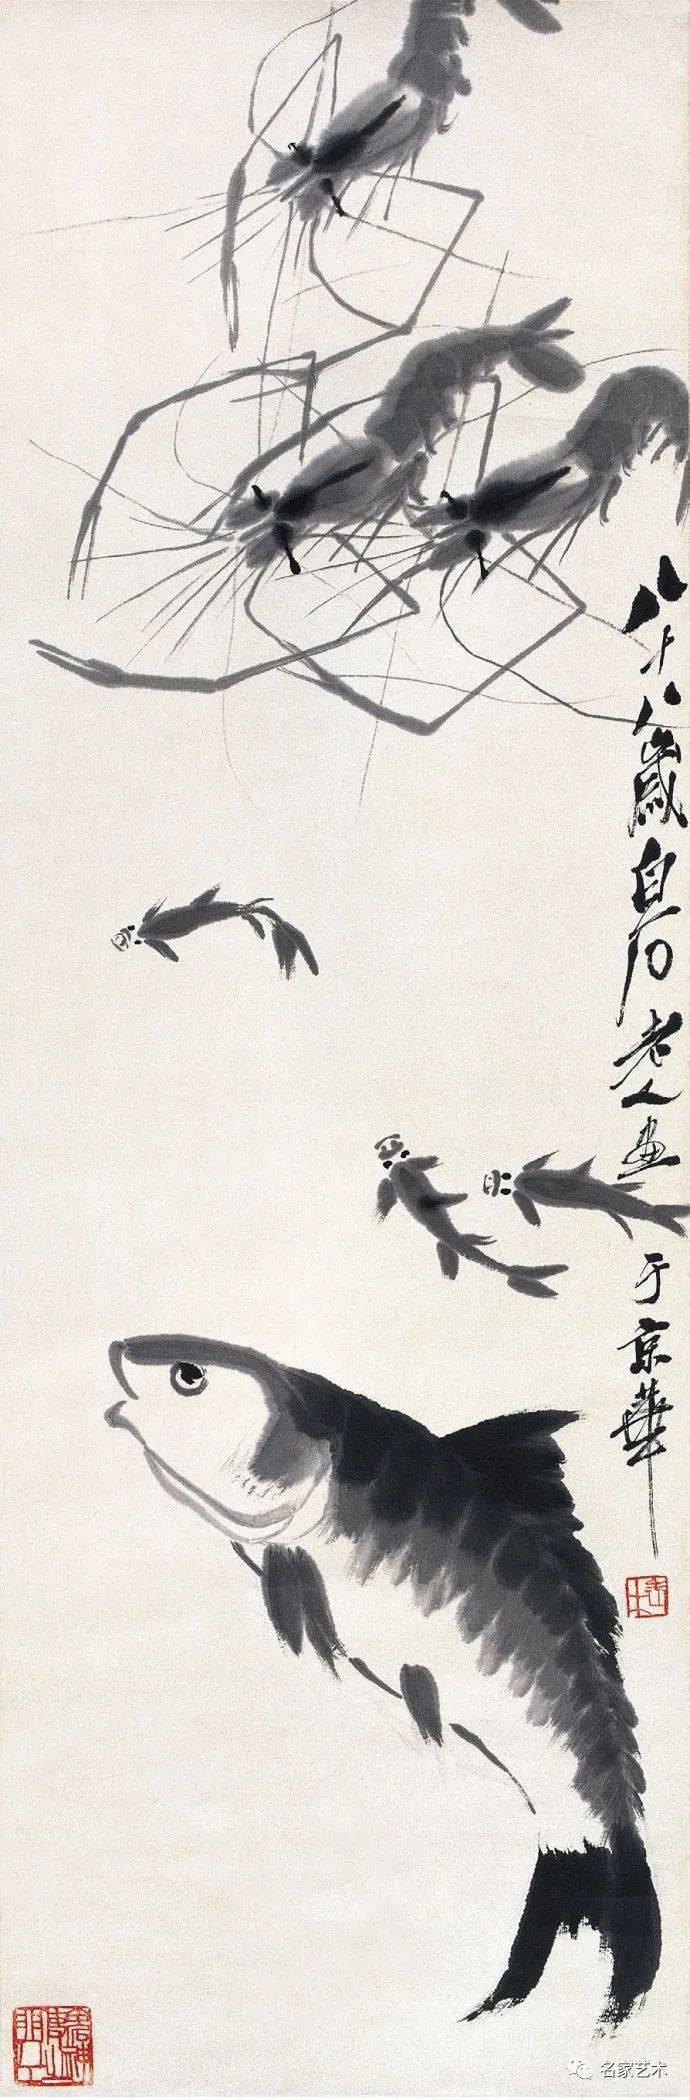 八十八歲白石老人畫于京華
名家艺术